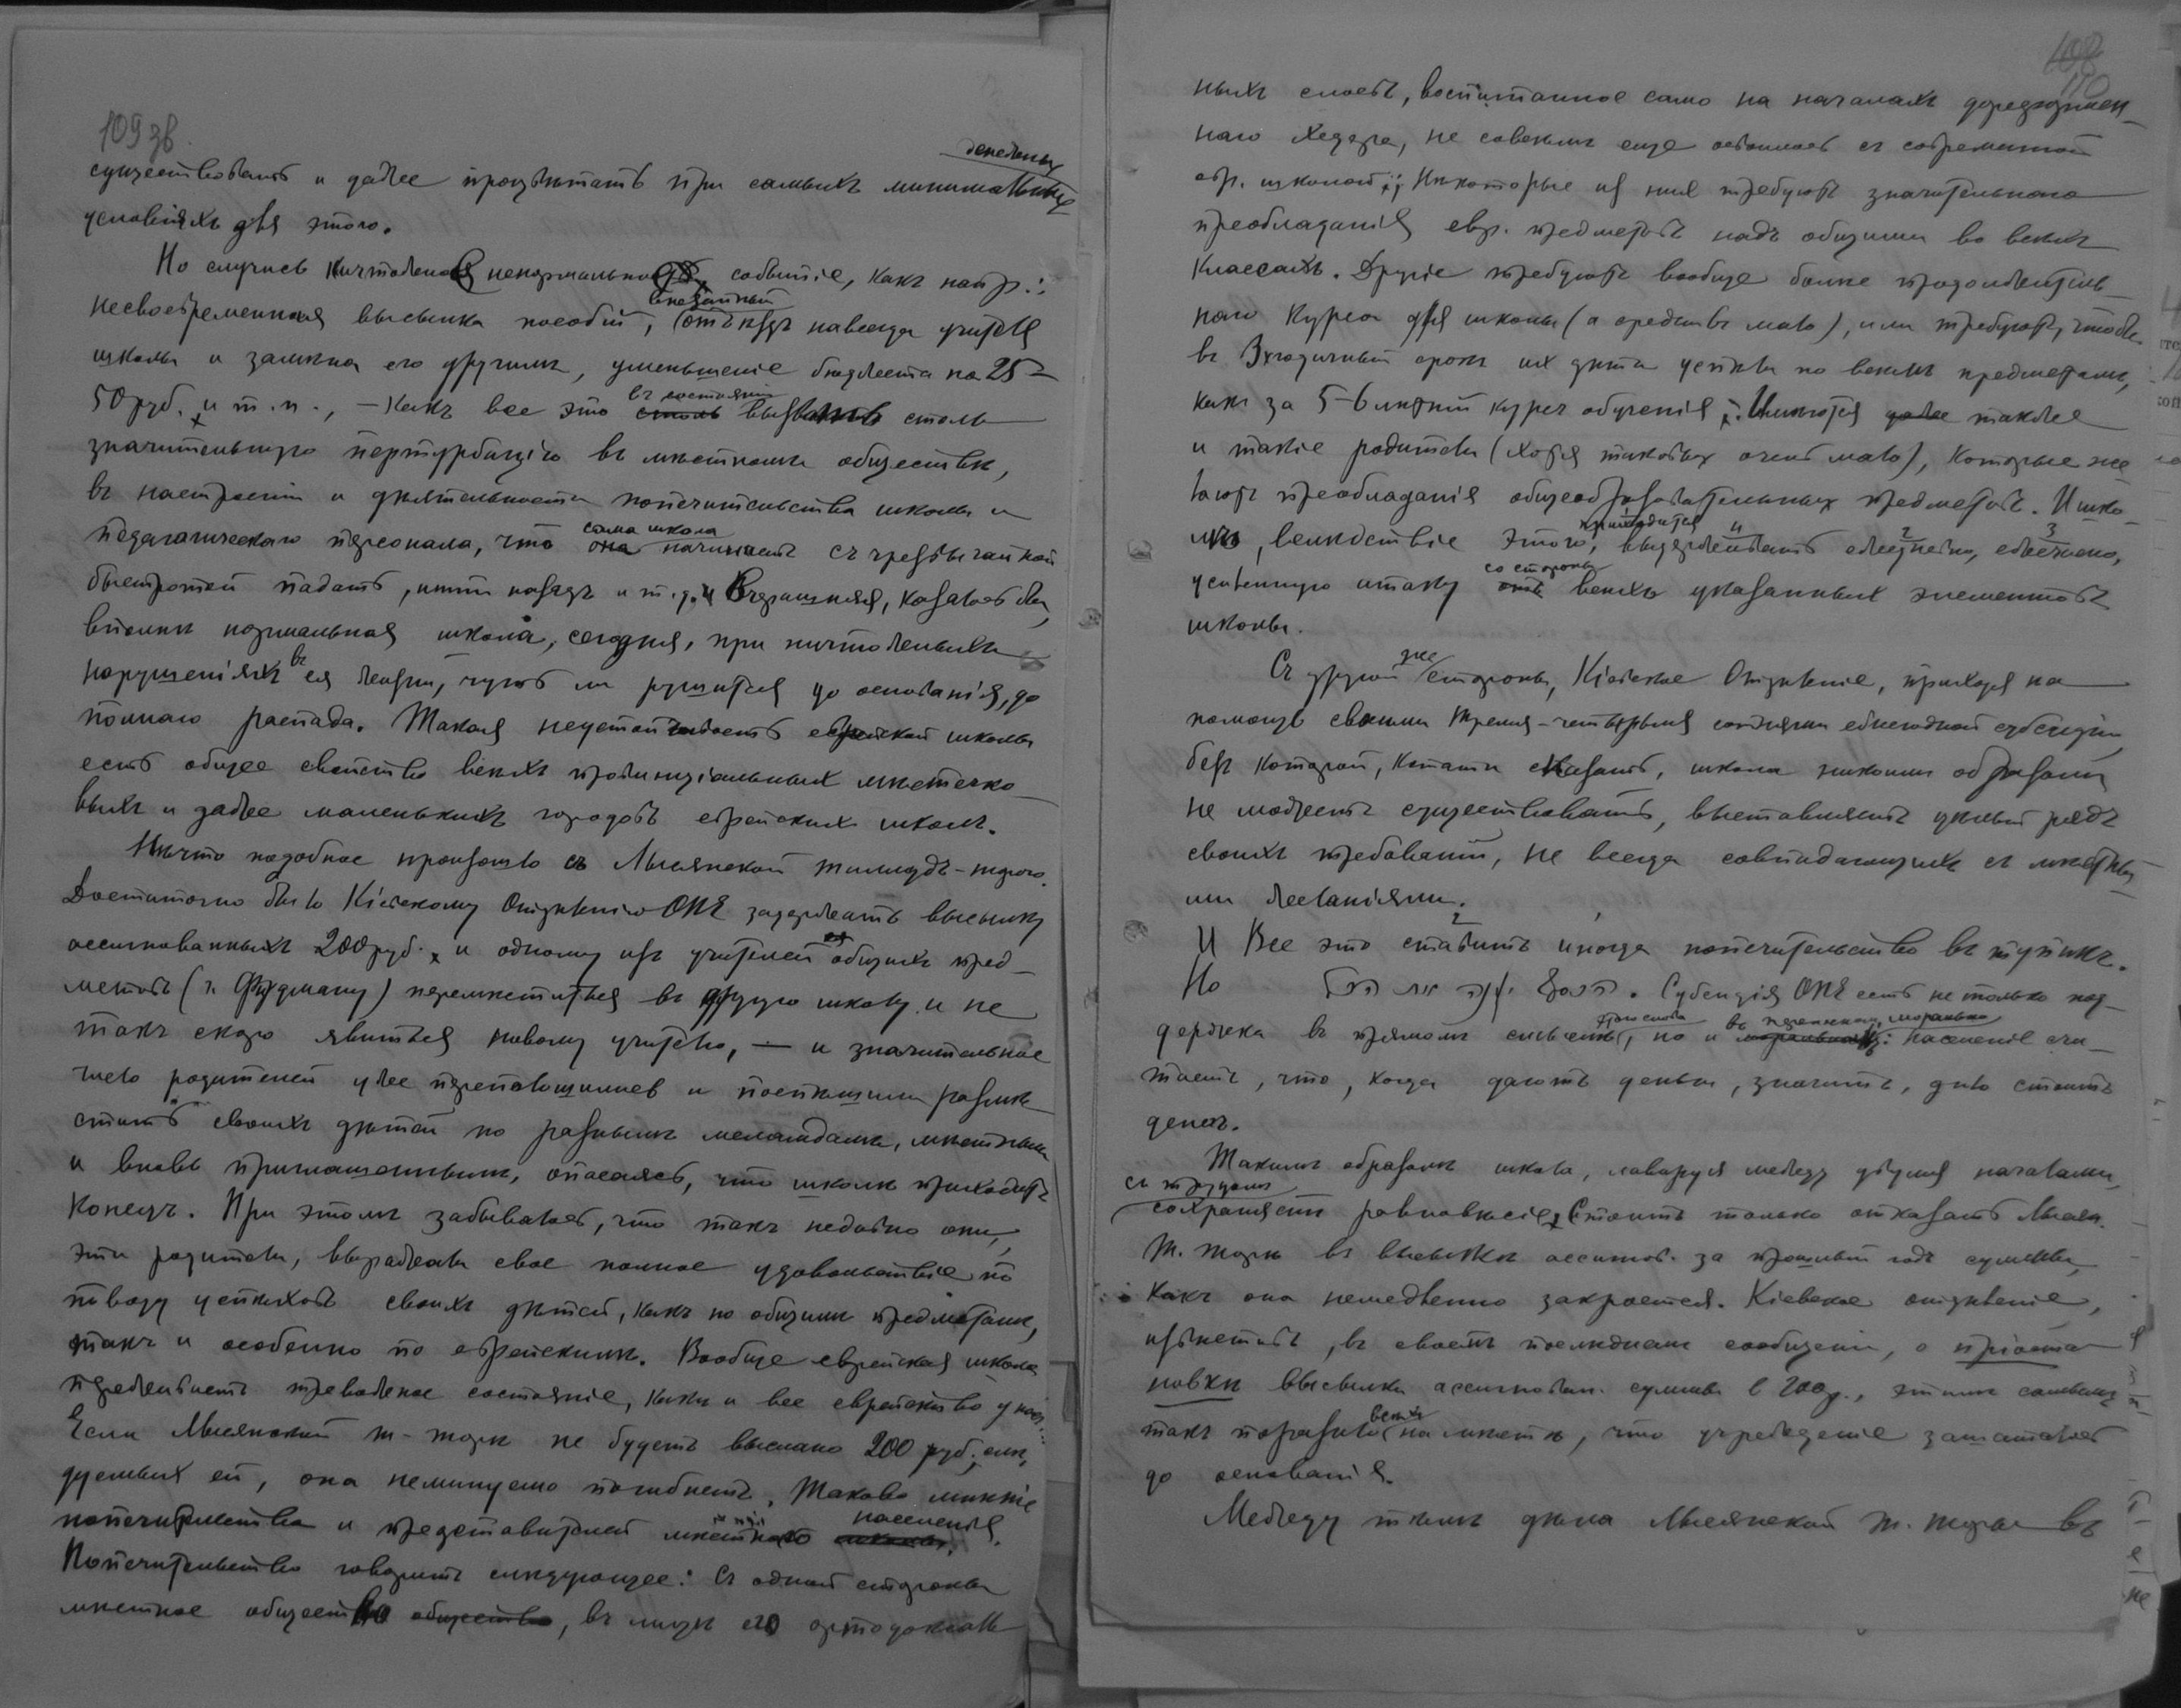 109 зв.
денежныхъ
существовать и даже процвѣтать при самыхъ минимальныхъ
условіяхъ для этого.
Но случись ничтожное ненормальное событіе, какъ напр.:
несвоевременная высылка пособій, внезапный отъѣздъ навсегда учителя
школы и замѣна его другимъ, уменьшеніе бюджета на 25-
50 руб. и т. п., – какъ все это въ состояніи вызвать столь
значительную пертурбацію въ мѣстномъ обществѣ,
въ настроеніи и дѣятельности попечительства школы и
педагогическаго персонала, что сама школа начинаетъ съ чрезвычайной
быстротой падать, итти назадъ и т. д. и вчерашняя, казалось бы,
вполнѣ нормальная школа, сегодня, при ничтожныхъ
нарушеніяхъ въ ея жизни, чуть ли рушится до основанія, до
полнаго распада. Такая неустойчивость еврейской школы
есть общее свойство всѣхъ провинціальныхъ мѣстечко-
выхъ и даже маленькихъ городовъ еврейскихъ школъ.
Нѣчто подобное произошло съ Лысянской талмудъ-торою.
Достаточно было Кіевскому Отдѣленію ОПЕ задержать высылку
ассигнованныхъ 200 руб. и одному изъ учителей общихъ пред-
метовъ (г. Фридману) перемѣститься въ другую школу и не
такъ скоро явиться новому учителю, – и значительное
число родителей уже переполошилось и поспѣшили размѣ-
стить своихъ дѣтей по разнымъ меламдамъ, мѣстнымъ
и вновь приглашеннымъ, опасаясь, что школѣ приходитъ
конецъ. При этомъ забывалось, что такъ недавно они,
эти родители, выражали свое полное удовольствіе по
поводу успѣховъ своихъ дѣтей, какъ по общимъ предметамъ,
такъ и особенно по еврейскимъ. Вообще еврейская школа
переживаетъ тревожное состояніе, какъ и все еврейство у насъ...
Если Лысянской т-торѣ не будетъ выслано 200 руб., слѣ-
дуемыхъ ей, она неминуемо погибнетъ. Таково мнѣніе
попечительства и представителей мѣстнаго населенія.
Попечительство говоритъ слѣдующее: Съ одной стороны
мѣстное общество общество, въ лицѣ его ортодоксаль-
108
110
ныхъ слоевъ, воспитанное само на началахъ дореформен-
наго хедера, не совсѣмъ еще освоилось съ современной
евр. школой; Нѣкоторые изъ нихъ требуютъ значительнаго
преобладанія евр. предметовъ надъ общими во всѣхъ
классахъ. Другіе требуютъ вообще болѣе продолжитель-
наго курса для школы (а средствъ мало), или требуютъ, чтобы
въ 3хгодичный срокъ ихъ дѣти успѣли по всѣмъ предметамъ,
какъ за 5-6 лѣтній курсъ обученія. Имѣются даже также
и такіе родители (хотя таковыхъ очень мало), которые же-
лаютъ преобладанія общеобразовательныхъ предметовъ. И шко-
лѣ, вслѣдствіе этого, приходится выдерживать ежедневно, ежечасно,
усиленную атаку со стороны всѣхъ указанныхъ элементовъ
школы.
Съ другой же стороны, Кіевское Отдѣленіе, приходя на
помощь своими тремя-четырьмя сотнями ежегодной субсидіи,
безъ которой, кстати сказать, школа никоимъ образомъ
не можетъ существовать, выставляетъ цѣлый рядъ
своихъ требованій, не всегда совпадающихъ съ мѣстны-
ми желаніями.
И Все это ставитъ иногда попечительство въ тупикъ.
Но . Субсидія ОПЕ есть не только под-
держка въ прямомъ смыслѣ этого слова, но и въ переносномъ, морально: населеніе счи-
таетъ, что, когда даютъ деньги, значитъ, дѣло стоитъ
денегъ.
Такимъ образомъ школа, лавируя между двумя началами,
съ трудомъ сохраняетъ равновѣсіе. Стоитъ только отказать Лысян.
т. торѣ въ высылкѣ ассигнов. за прошлый годъ суммы,
какъ она немедленно закроется. Кіевское отдѣленіе,
извѣстивъ, въ своемъ послѣднемъ сообщеніи, о пріоста-
новкѣ высылки ассигнован. суммы въ 200р., этимъ самымъ
такъ поразило всѣхъ на мѣстѣ, что учрежденіе зашаталось
до основанія.
Между тѣмъ дѣла Лысянской т. торы въ